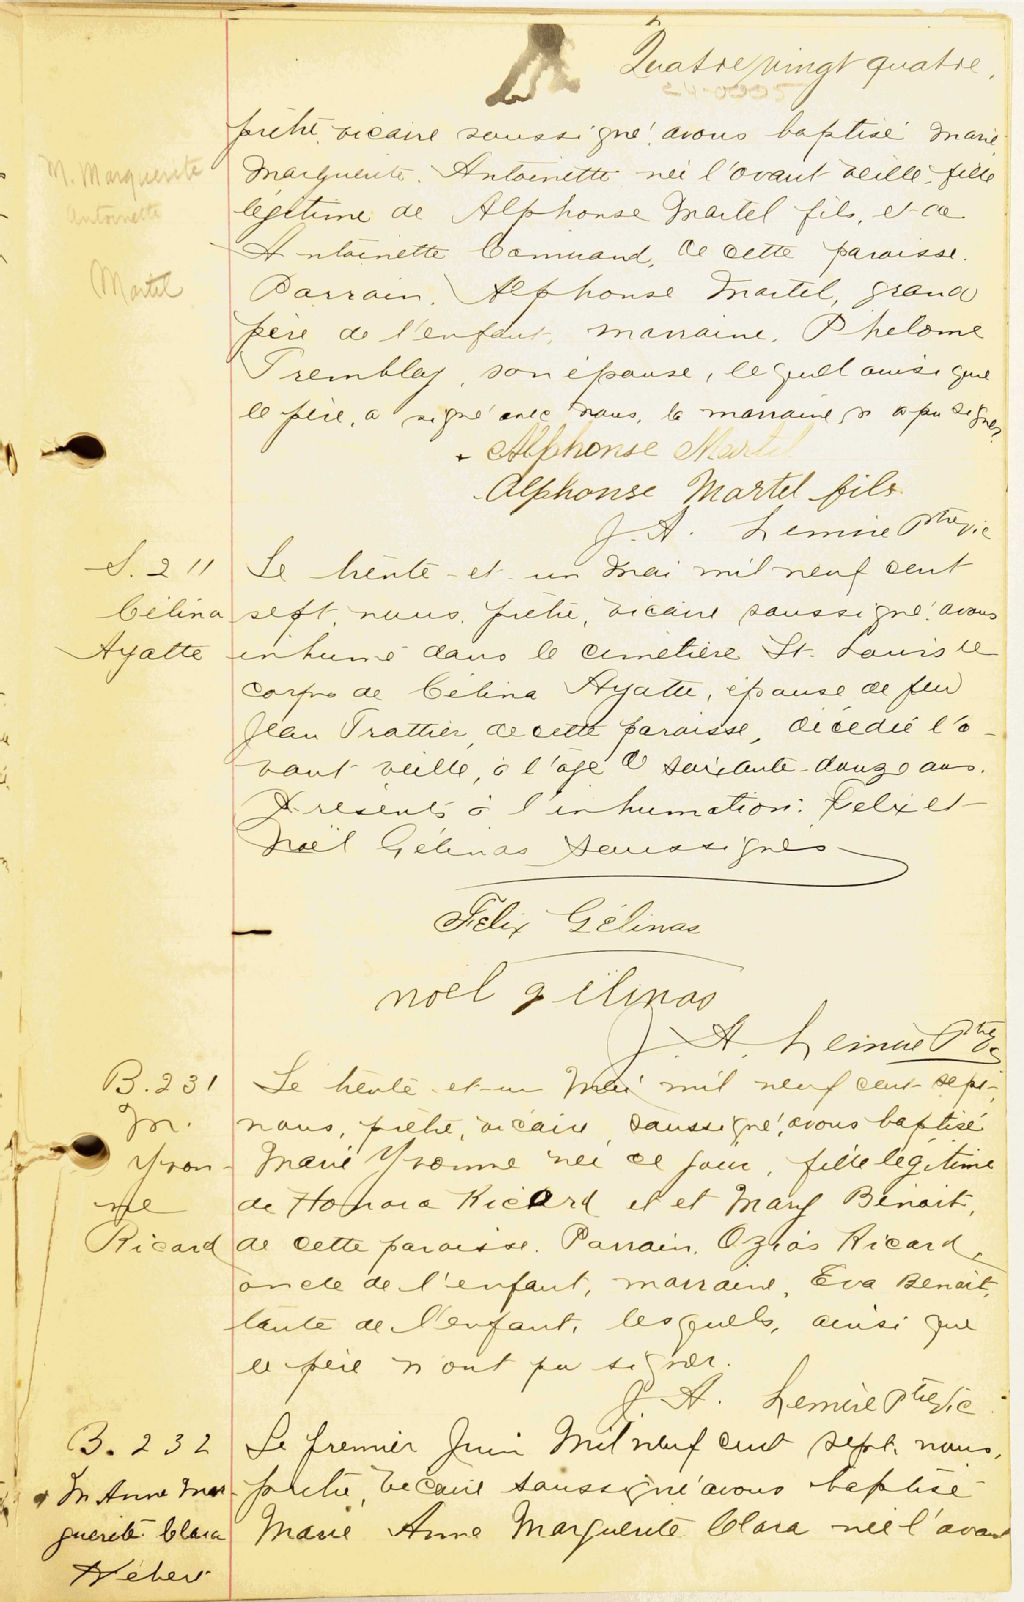 Quatre vingt quatre.
24-0995
prêtre vicaire soussigné, avons baptisé Marie
Marguerite Antoinette née l'avant veille, fille
légitime de Alphonse Martel fils, et de
Antoinette de cette paroisse.
Parrain, Alphonse Martel, grand
père de l'enfant, marraine, Phelome
Tremblay, son épouse, lequel ainsi que
le père, a signé avec nous, la marraine n'a pu signer.
Alphonse Martel
Alphonse Martel fils
J. A. Lemire Ptre vic
M. Marguerite
Antoinette
Martel
S. 211
Célina
Ayatte
Le trente-et-un Mai mil neuf cent
sept, nous, prêtre, vicaire soussigné, avons
inhumé dans le cimetière St. Louis le
corps de Célina Ayatte, épouse de feu
Jean Trottier, de cette paroisse, décédée l'a-
vant veille, à l'âge de soixante-douze ans.
Présents à l'inhumation: Felix et
Noël Gélinas soussignés
Felix Gélinas
noel gélinas
J. A. Lemire Ptre Vic
B. 231
M.
Yvon-
ne
Ricard
Le trente-et-un Mai mil neuf cent sept,
nous, prêtre, vicaire, soussigné, avons baptisé
Marie Yvonne née ce jour, fille légitime
de Honora Ricard et et Mary Benoit,
de cette paroisse. Parrain, Ozias Ricard,
oncle de l'enfant, marraine, Eva Benoit,
tante de l'enfant, lesquels, ainsi que
le père n'ont pu signer.
J. A. Lemire Ptre Vic
B. 232
M Anne Mar-
guerite Clara
Hébert
Le premier Juin Mil neuf cent sept, nous,
prêtre, vicaire soussigné avons baptisé
Marie Anne Marguerite Clara née l'avant